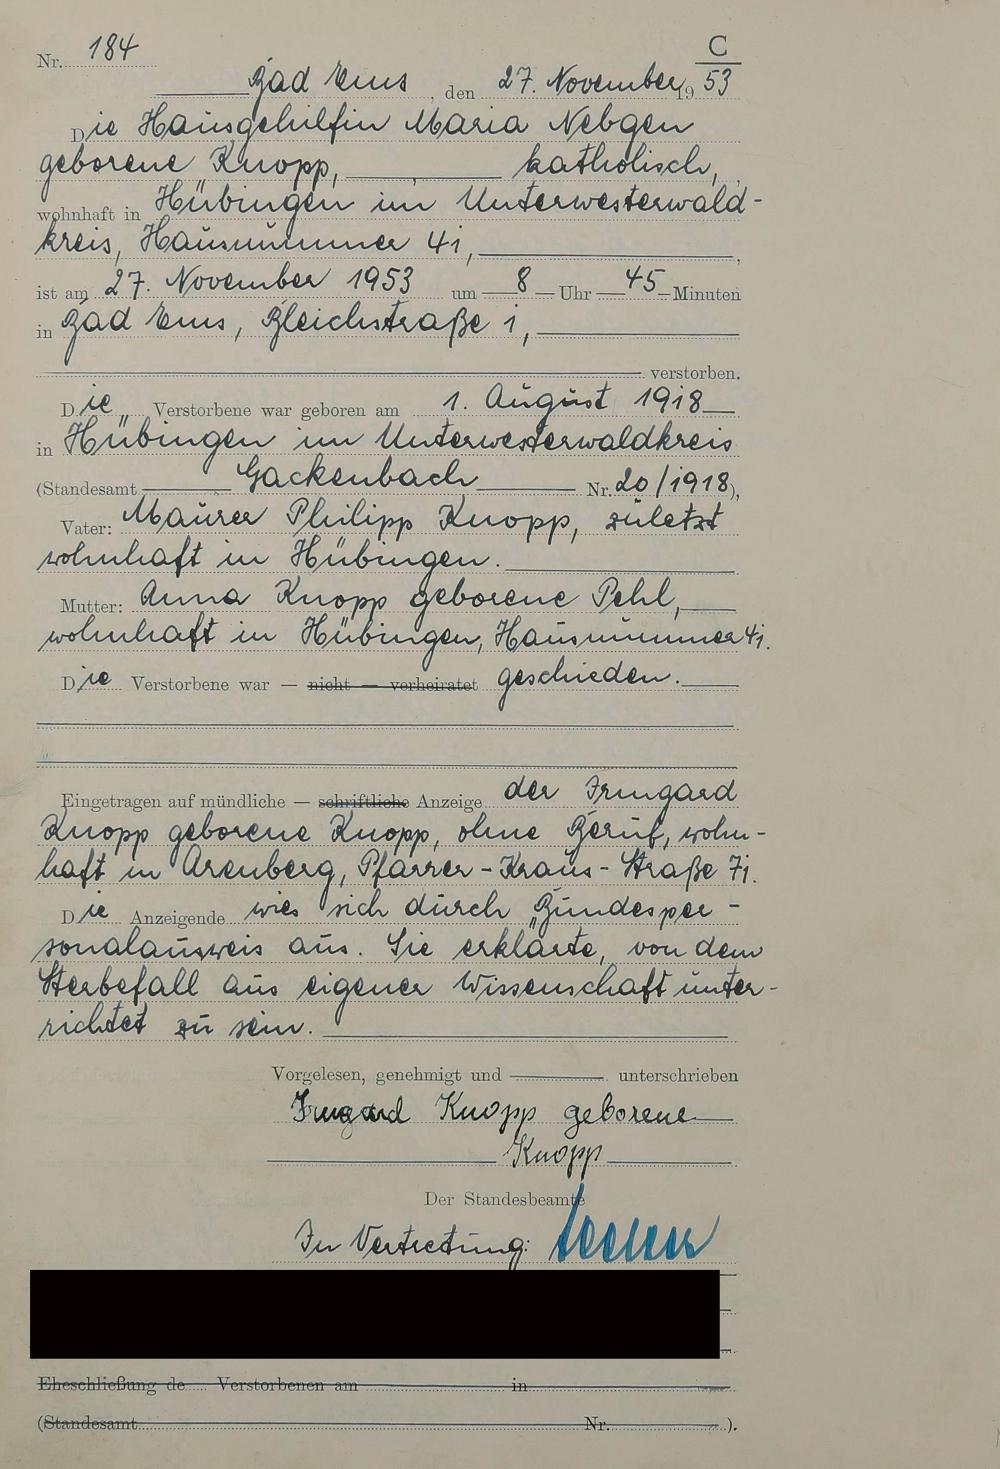 C
Nr. 184
Bad Ems, den 27. November 1953
Die Hausgehilfin Maria Nebgen
geborene Knopp, katholisch,
wohnhaft in Hübingen im Unterwesterwald-
kreis, Hausnummer 41,
ist am 27. November 1953 um 8 Uhr 45 Minuten
in Bad Ems, Bleichstraße 1,
verstorben.
Die Verstorbene war geboren am 1. August 1918
in Hübingen im Unterwesterwaldkreis
(Standesamt Gackenbach Nr. 20/1918),
Vater: Maurer Philipp Knopp, zuletzt
wohnhaft in Hübingen.
Mutter: Anna Knopp geborene Pehl,
wohnhaft in Hübingen, Hausnummer 41.
Die Verstorbene war — nicht — verheiratet geschieden.
Eingetragen auf mündliche — schriftliche Anzeige der Irmgard
Knopp geborene Knopp, ohne Beruf, wohn-
haft in Arenberg, Pfarrer-Kraus-Straße 71.
Die Anzeigende wies sich durch Bundesper-
sonalausweis aus. Sie erklärte, von dem
Sterbefall aus eigener Wissenschaft unter-
richtet zu sein.
Vorgelesen, genehmigt und unterschrieben
Irmgard Knopp geborene
Knopp
Der Standesbeamte
In Vertretung:
Eheschließung de Verstorbenen am in
(Standesamt Nr. ).